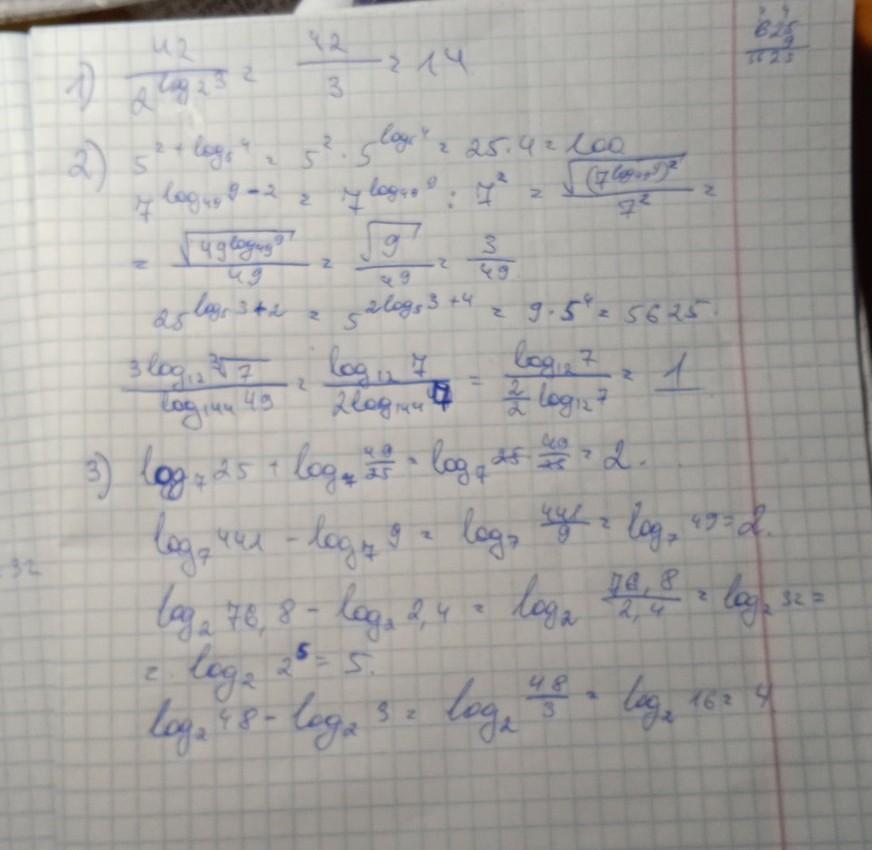 625
9
5625
1) 42 / 2^(log₂3) = 42/3 = 14
2) 5^(2+log₅4) = 5² · 5^(log₅4) = 25·4 = 100
7^(log₄₉9-2) = 7^(log₄₉9) : 7² = √((7^(log₄₉9))²) / 7² =
= √(49^(log₄₉9)) / 49 = √9 / 49 = 3/49
25^(log₅3+2) = 5^(2log₅3+4) = 9·5⁴ = 5625.
3log₁₂∛7 / log₁₄₄49 = log₁₂7 / 2log₁₄₄7 = log₁₂7 / (2/2 log₁₂7) = 1
3) log₇25 + log₇ 49/25 = log₇ 25 · 49/25 = 2.
log₇441 - log₇9 = log₇ 441/9 = log₇49 = 2.
log₂76,8 - log₂2,4 = log₂ 76,8/2,4 = log₂32 =
= log₂2⁵ = 5.
log₂48 - log₂3 = log₂ 48/3 = log₂16 = 4